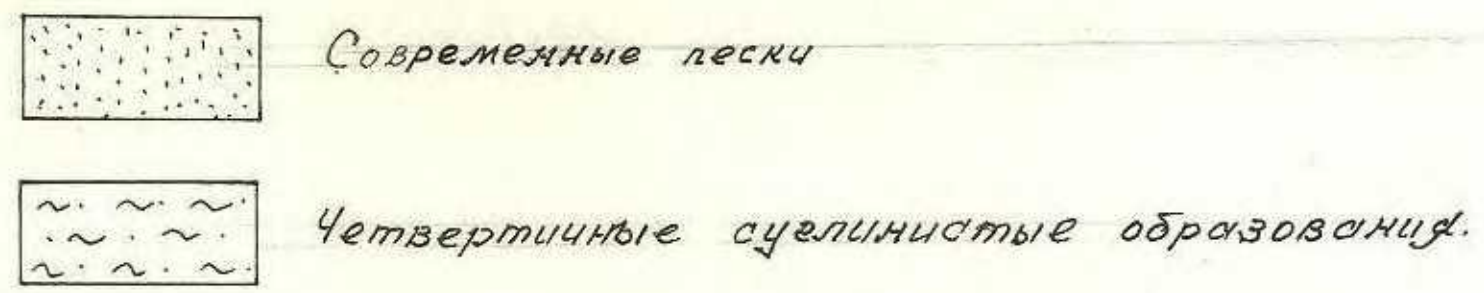 Современные пески
Четвертичные суглинистые образования.